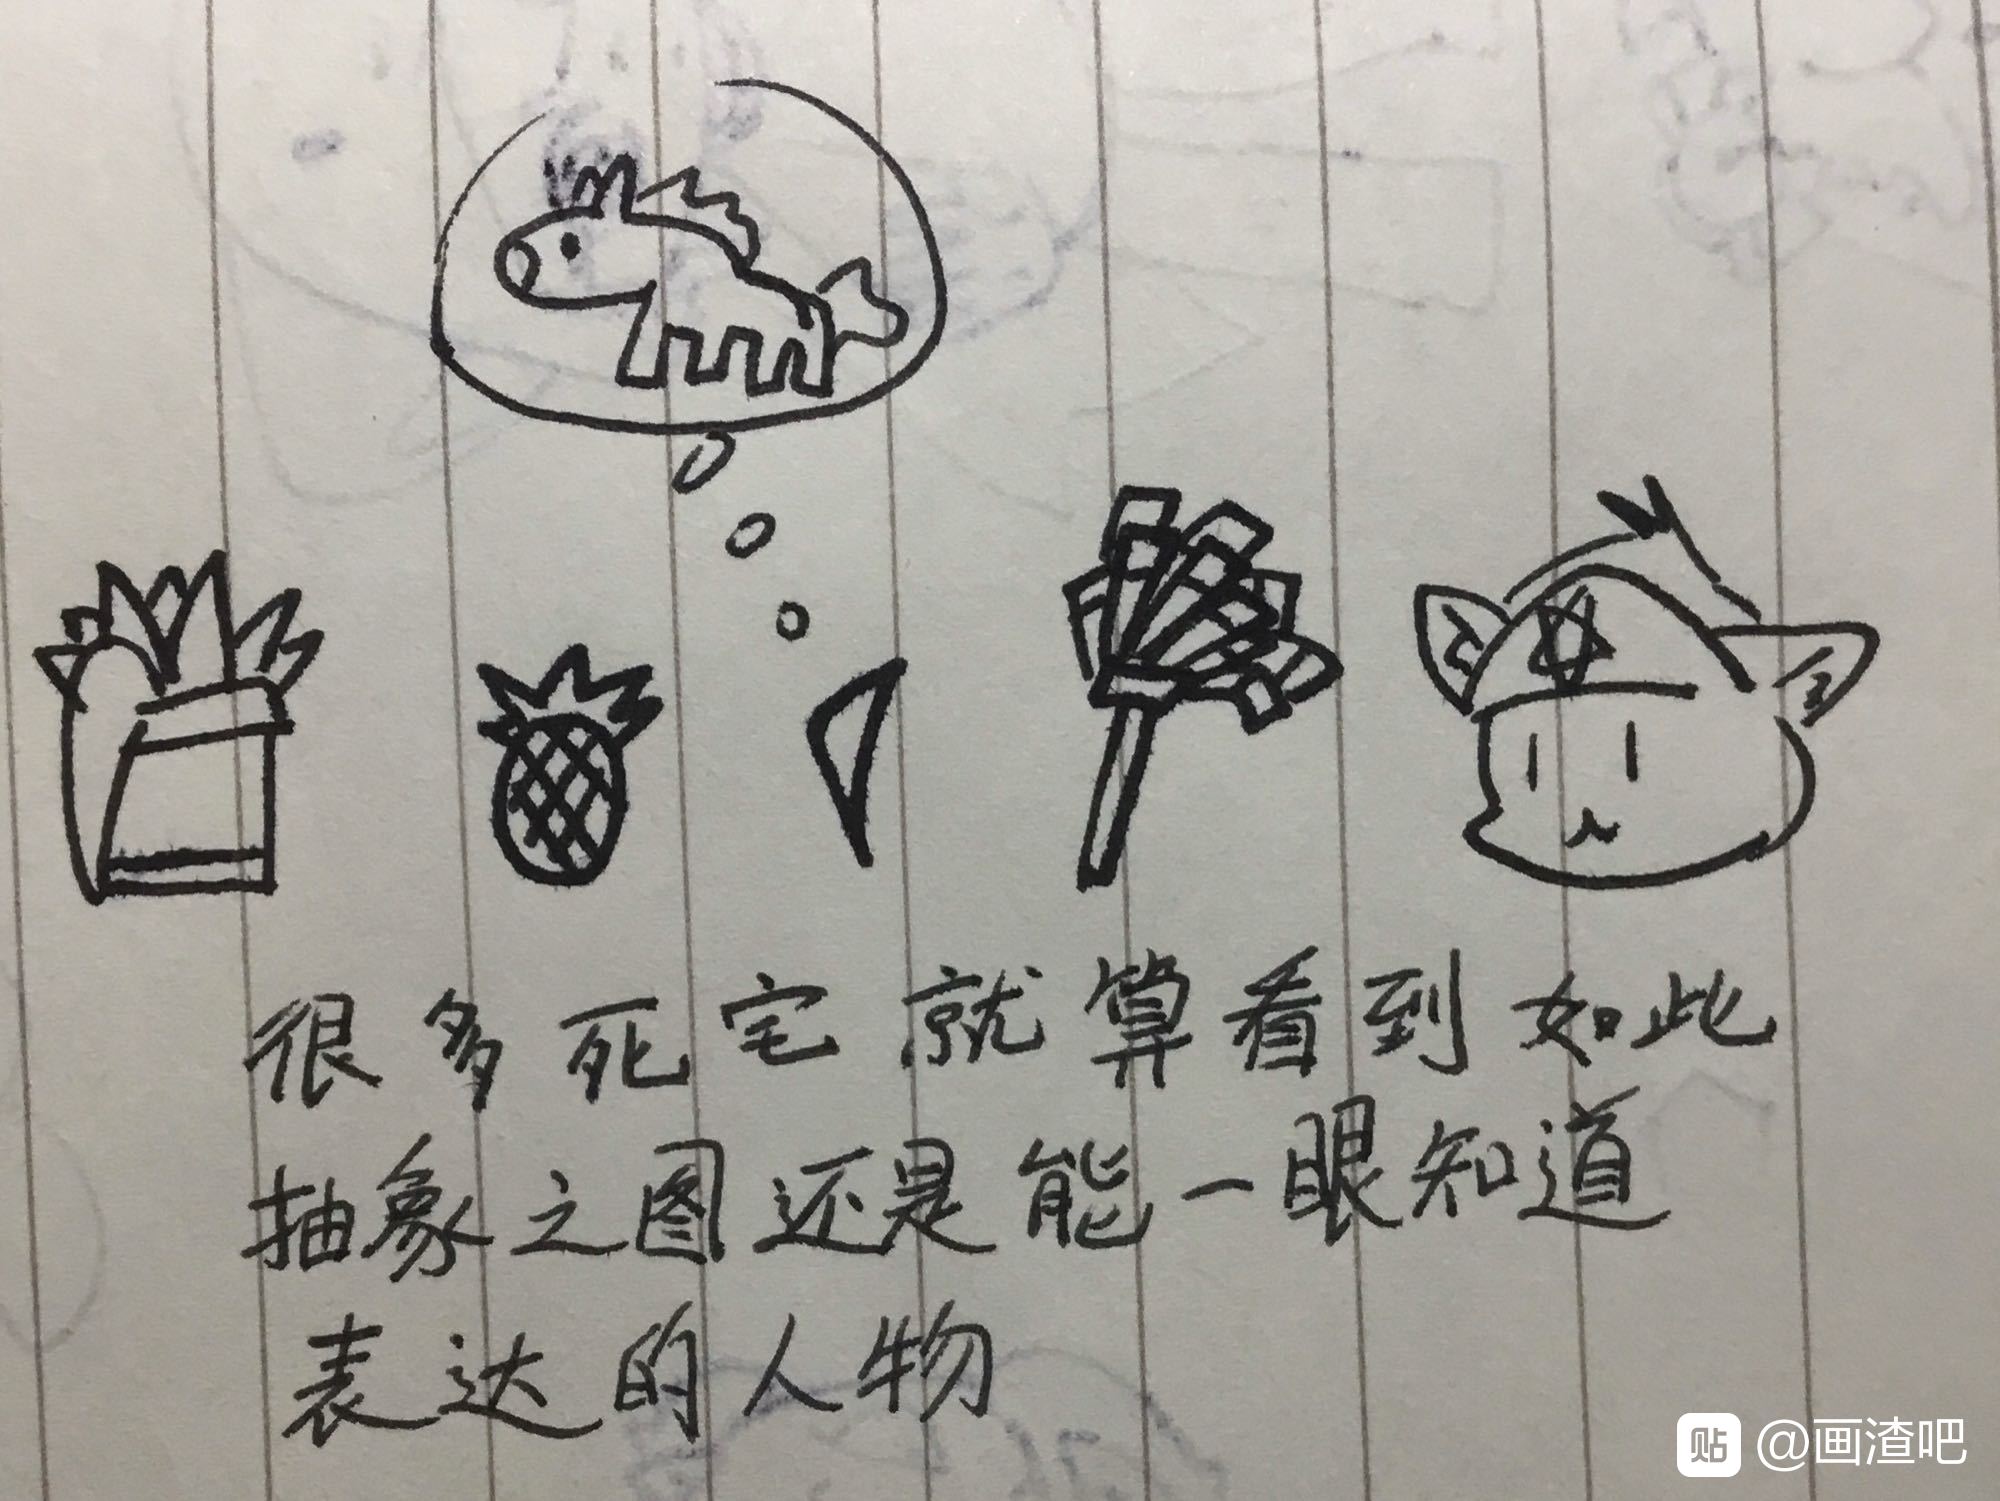 很多死宅就算看到如此
抽象之图还是能一眼知道
表达的人物
贴 @画渣吧